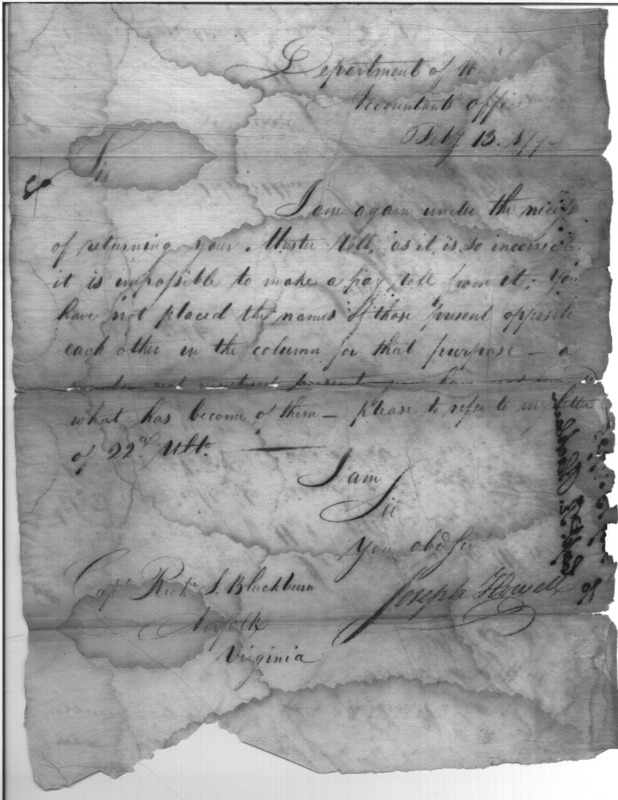 Department of War
Accountants office
Feby 13. 179
Sir
I am again under the necess
of returning your Muster Roll, as it is so incorrect
it is impossible to make a pay roll from it; you
have not placed the names of those present opposite
each other in the column for that purpose – a
number not mustered present you have not
what has become of them – please to refer to my letter
of 22d Ulto.
I am
Sir
Your obd Ser
Joseph Howell
Capt Richd S. Blackburn
Norfolk
Virginia